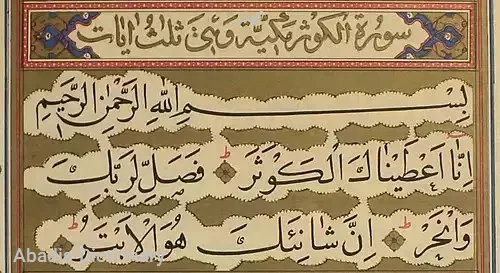 سورة الكوثر مكية وهي ثلث ايات
بِسْمِ اللهِ الرَّحْمٰنِ الرَّحِيمِ
اِنَّا اَعْطَيْنَاكَ الْكَوْثَرَ ط فَصَلِّ لِرَبِّكَ
وَانْحَرْ ط اِنَّ شَانِئَكَ هُوَ الْاَبْتَرُ ط